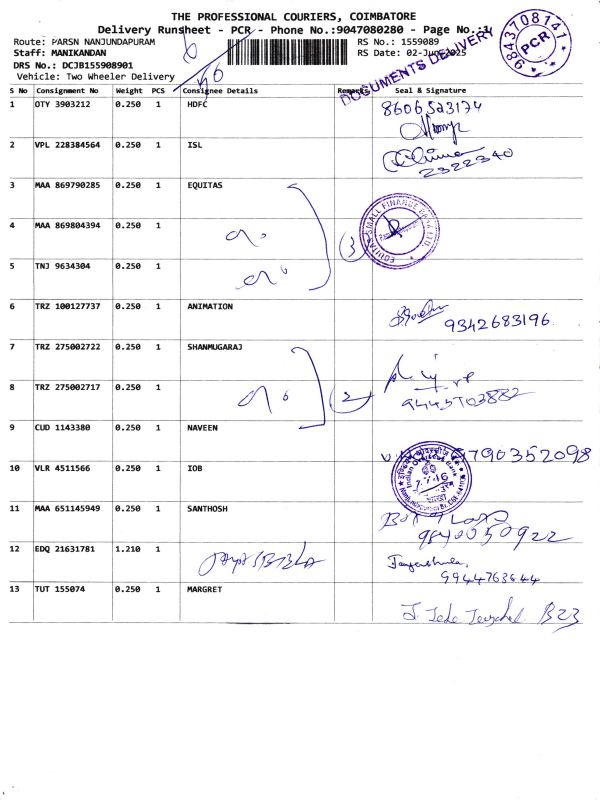 THE PROFESSIONAL COURIERS, COIMBATORE
Delivery Runsheet - PCR - Phone No.:9047080280 - Page No.:1
Route: PARSN NANJUNDAPURAM RS No.: 1559089
Staff: MANIKANDAN RS Date: 02-Jun-2025
DRS No.: DCJB155908901
Vehicle: Two Wheeler Delivery
DOCUMENTS DELIVERY
9843708141
PCR
S No Consignment No Weight PCS Consignee Details Remarks Seal & Signature
1 OTY 3903212 0.250 1 HDFC 8606523174
2 VPL 228384564 0.250 1 ISL
2322340
3 MAA 869790285 0.250 1 EQUITAS
4 MAA 869804394 0.250 1 (3) EQUITAS SMALL FINANCE BANK LTD.
5 TNJ 9634304 0.250 1
6 TRZ 100127737 0.250 1 ANIMATION 9342683196
7 TRZ 275002722 0.250 1 SHANMUGARAJ
8 TRZ 275002717 0.250 1 (2) 9445703882
9 CUD 1143380 0.250 1 NAVEEN 7790352098
10 VLR 4511566 0.250 1 IOB Indian Overseas Bank
11 MAA 651145949 0.250 1 SANTHOSH
9840050922
12 EDQ 21631781 1.210 1
9944763644
13 TUT 155074 0.250 1 MARGRET